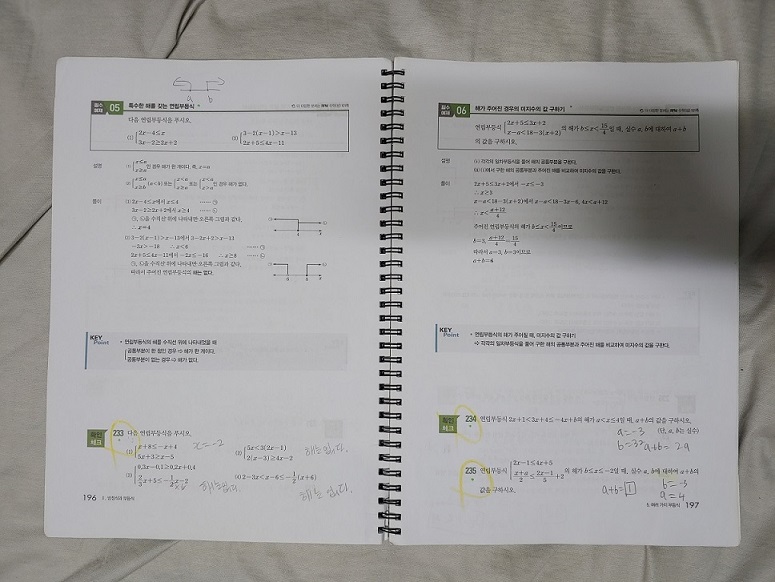 a b
필수 예제 05 특수한 해를 갖는 연립부등식
다음 연립부등식을 푸시오.
(1) { 2x-4≤x
3x-2≥2x+2
(2) { 3-2(x-1)>x-13
2x+5≤4x-11
설명 (1) { x≤a
x≥a 인 경우 해가 한 개이다. 즉, x=a
(2) { x≤a
x≥b (a<b) 또는 { x<a
x≥a 또는 { x<a
x>a 인 경우 해가 없다.
풀이 (1) 2x-4≤x에서 x≤4 ······ ㉠
3x-2≥2x+2에서 x≥4 ······ ㉡
㉠, ㉡을 수직선 위에 나타내면 오른쪽 그림과 같다.
∴ x=4
-3x>-18 ∴ x<6 ······ ㉠
2x+5≤4x-11에서 -2x≤-16 ∴ x≥8 ······ ㉡
㉠, ㉡을 수직선 위에 나타내면 오른쪽 그림과 같다.
따라서 주어진 연립부등식의 해는 없다.
KEY Point
• 연립부등식의 해를 수직선 위에 나타내었을 때
공통부분이 한 점인 경우 ⇨ 해가 한 개이다.
공통부분이 없는 경우 ⇨ 해가 없다.
확인 체크 233 다음 연립부등식을 푸시오.
(1) { x+8≤-x+4
5x+3≥x-5
x=-2
(2) { 5x<3(2x-1)
2(x-3)≥4x-2
해는 없다.
(3) { 0.3x-0.1≥0.2x+0.4
해는 없다.
(4) 2-3x<x-6≤-1/2(x+6)
해는 없다.
196
필수 예제 06 해가 주어진 경우의 미지수의 값 구하기
연립부등식 { 2x+5≤3x+2
x-a<18-3(x+2) 의 해가 b≤x<15/4일 때, 실수 a, b에 대하여 a+b
의 값을 구하시오.
설명 (i) 각각의 일차부등식을 풀어 해의 공통부분을 구한다.
(ii) (i)에서 구한 해의 공통부분이 주어진 해를 비교하여 미지수의 값을 구한다.
풀이 2x+5≤3x+2에서 -x≤-3
∴ x≥3
x-a<18-3(x+2)에서 x-a<18-3x-6, 4x<a+12
∴ x<a+12/4
주어진 연립부등식의 해가 b≤x<15/4이므로
b=3, a+12/4=15/4
따라서 a=3, b=3이므로
KEY Point
• 연립부등식의 해가 주어질 때, 미지수의 값 구하기
⇨ 각각의 일차부등식을 풀어 구한 해의 공통부분과 주어진 해를 비교하여 미지수의 값을 구한다.
확인 체크 234 연립부등식 2x+1<3x+4≤-4x+b의 해가 a<x≤4일 때, a+b의 값을 구하시오.
(단, a, b는 실수)
a=-3
b=32 a+b=29
235 연립부등식 { 2x-1≤4x+5
x+a/2 ≤ 2x-1/5 +2 의 해가 b≤x≤-2일 때, 실수 a, b에 대하여 a+b의
값을 구하시오.
a+b=1
b=-3
a=4
197